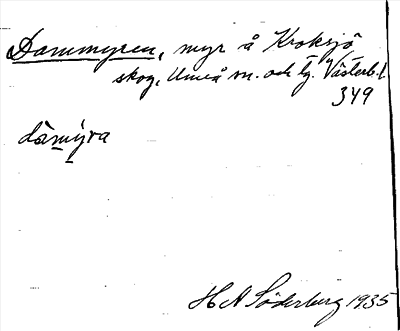 Dammyren, myr å Kroksjö
skog, Umeå sn. och tg. Västerb. l.
349
dàmýra
H A Söderberg 1935